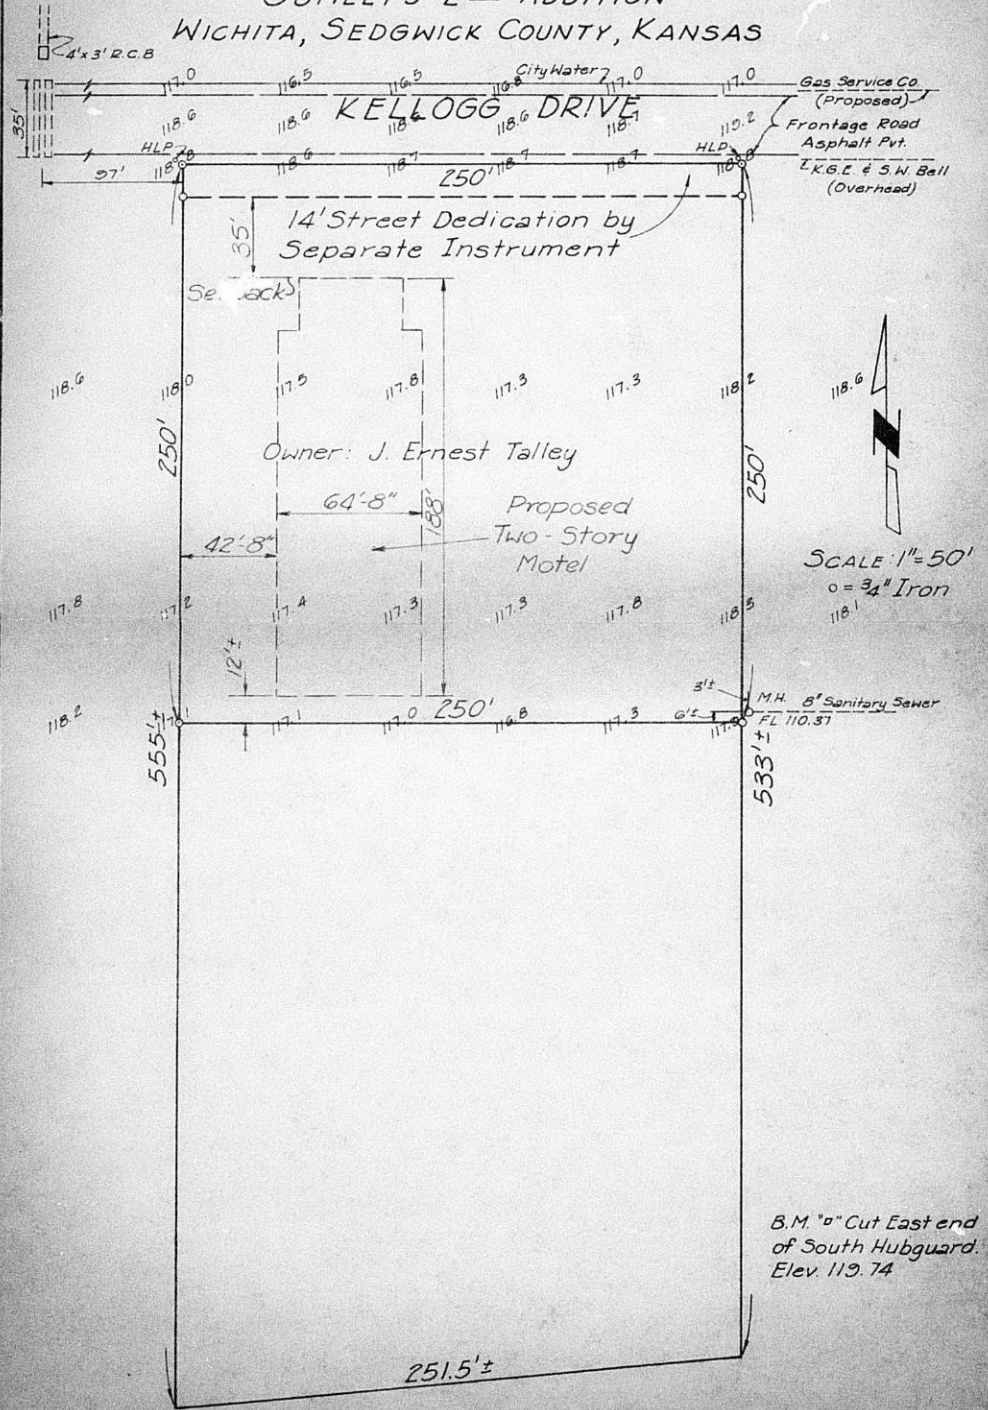 ADDITION
WICHITA, SEDGWICK COUNTY, KANSAS
4'x3' R.C.B
City Water
117.0 116.5 116.5 116.8 117.0 117.0
Gas Service Co.
(Proposed)
35'
KELLOGG DRIVE
118.6 118.6 118.6 118.6 118.7 119.2
Frontage Road
Asphalt Pvt.
HLP
HLP
118.8 118.6 118.7 118.7 118.7 118.8
K.G.E. & S.W. Bell
(Overhead)
97'
250'
14' Street Dedication by
Separate Instrument
35'
Se ack
118.6 118.0 117.5 117.8 117.3 117.3 118.2 118.6
250'
250'
N
Owner: J. Ernest Talley
64'-8"
188'
Proposed
Two-Story
Motel
42'-8"
SCALE: 1"=50'
o = 3/4" Iron
117.8 117.2 117.4 117.3 117.3 117.8 118.3 118.1
12'±
3'±
M.H. 8" Sanitary Sewer
6'±
FL 110.37
250'
118.2 117.1 117.0 116.8 117.3 117.9
555'±
533'±
B.M. "□" Cut East end
of South Hubguard.
Elev. 119.74
251.5'±